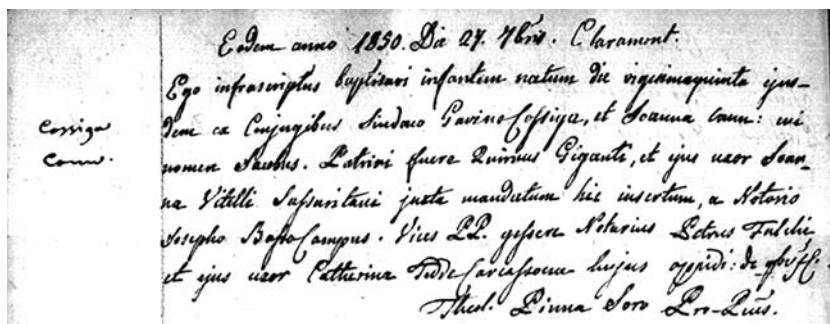 Eodem anno 1850. Die 27. 7bris. Claramont.
Ego infrascriptus baptisavi infantem natum die vigesimaquinta ejus-
dem ex Conjugibus Sindaco Gavino Cossiga, et Joanna Cann: cui
nomen Jacobus. Patrini fuere Quiricus Giganti, et ejus uxor Joan-
na Vitelli Sassaritani juxta mandatum hic insertum, a Notorio
Josepho Basso Campus. Vices PP. gessere Notarius Petrus Fulchi
et ejus uxor Catherina Tedde Carcassona hujus oppidi: de
Theol. Pinna Soro Pro-
Cossiga
Cann.